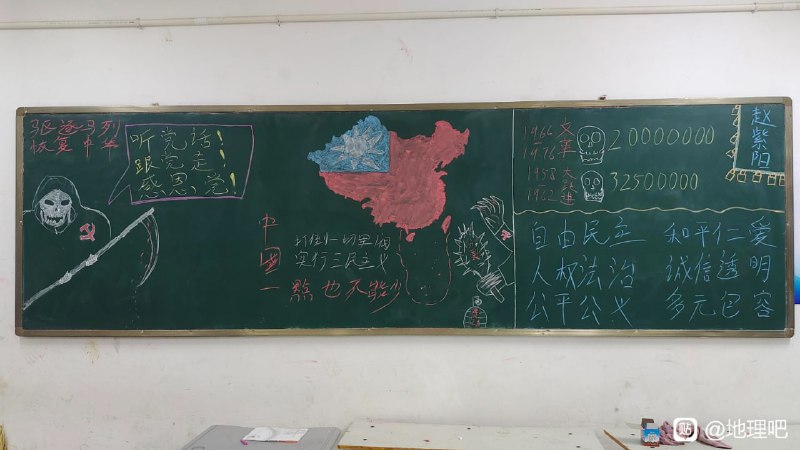 驱逐马列
恢复中华
听党话!
跟党走!
感恩党!
中國一點也不能少
打倒一切土阀
实行三民主义
1966
1976
文革
20000000
1958
1962
大跃进
32500000
赵紫阳
自由民主 和平仁爱
人权法治 诚信透明
公平公义 多元包容
贴 @地理吧